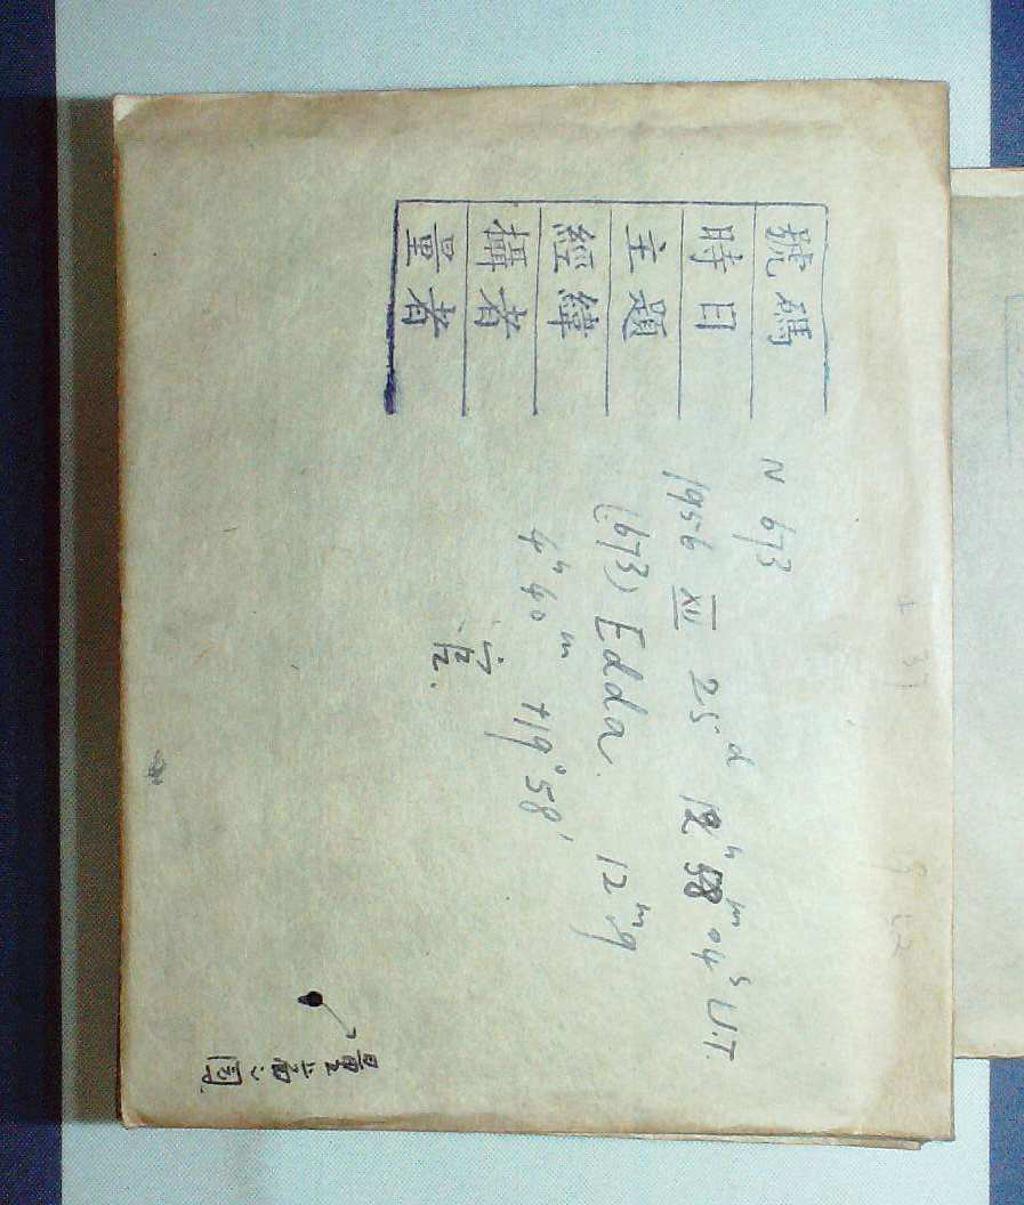 號碼 N 673
時日 1956 XII 25ᵈ 12ʰ 58ᵐ 04ˢ U.T.
主題 (673) Edda. 12ᵐ9
經緯 4ʰ 40ᵐ +19°58′
攝者
量者